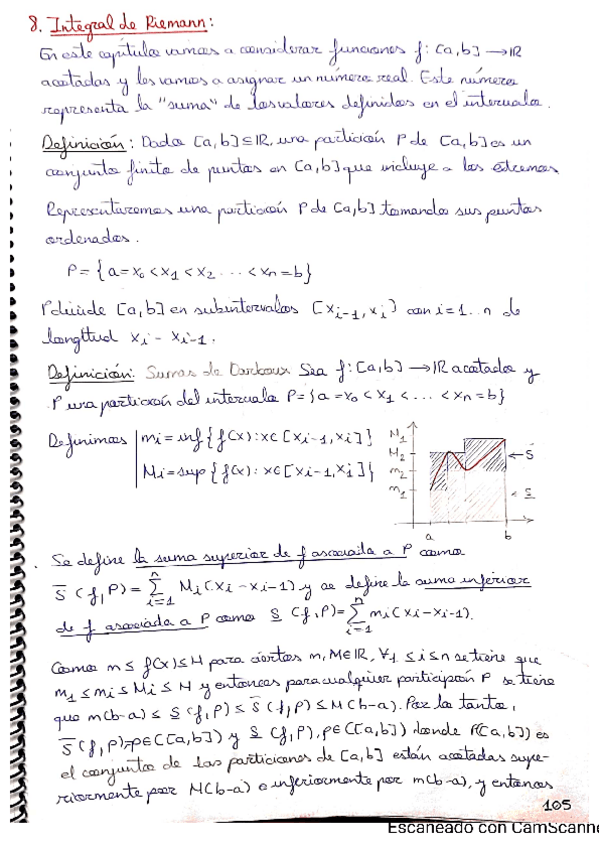 8. Integral de Riemann:
En este capítulo vamos a considerar funciones f: [a,b] → IR
acotadas y los vamos a asignar un número real. Este número
representa la "suma" de los valores definidos en el intervalo.
Definición: Dado [a,b] ⊆ IR, una partición P de [a,b] es un
conjunto finito de puntos en [a,b] que incluye a los extremos
Representaremos una partición P de [a,b] tomando sus puntos
ordenados.
P = { a = x₀ < x₁ < x₂ ... < xn = b}
P divide [a,b] en subintervalos [xi-1, xi] con i=1..n de
longitud xi - xi-1.
Definición: Sumas de Darboux Sea f: [a,b] → IR acotada y
P una partición del intervalo P = {a = x₀ < x₁ < ... < xn = b}
Definimos | mi = inf { f(x): x∈ [xi-1, xi] }
Mi = sup { f(x): x∈ [xi-1, xi] }
M₁
M₂
m₂
m₁
← S̄
< S̲
a
b
Se define la suma superior de f asociada a P como
S̄ (f, P) = Σ i=1 n Mi (xi - xi-1) y se define la suma inferior
de f asociada a P como S̲ (f, P) = Σ i=1 n mi (xi - xi-1).
Como m ≤ f(x) ≤ M para ciertos m, M∈IR, ∀1 ≤ i ≤ n se tiene que
m₁ ≤ mi ≤ Mi ≤ M y entonces para cualquier participación P se tiene
que m(b-a) ≤ S̲ (f, P) ≤ S̄ (f, P) ≤ M(b-a). Por lo tanto,
S̄ (f, P), P∈ ([a,b]) y S̲ (f, P), P∈ ([a,b]) donde P([a,b]) es
el conjunto de las particiones de [a,b] están acotadas supe-
riormente por M(b-a) e inferiormente por m(b-a), y entonces
105
Escaneado con CamScanne